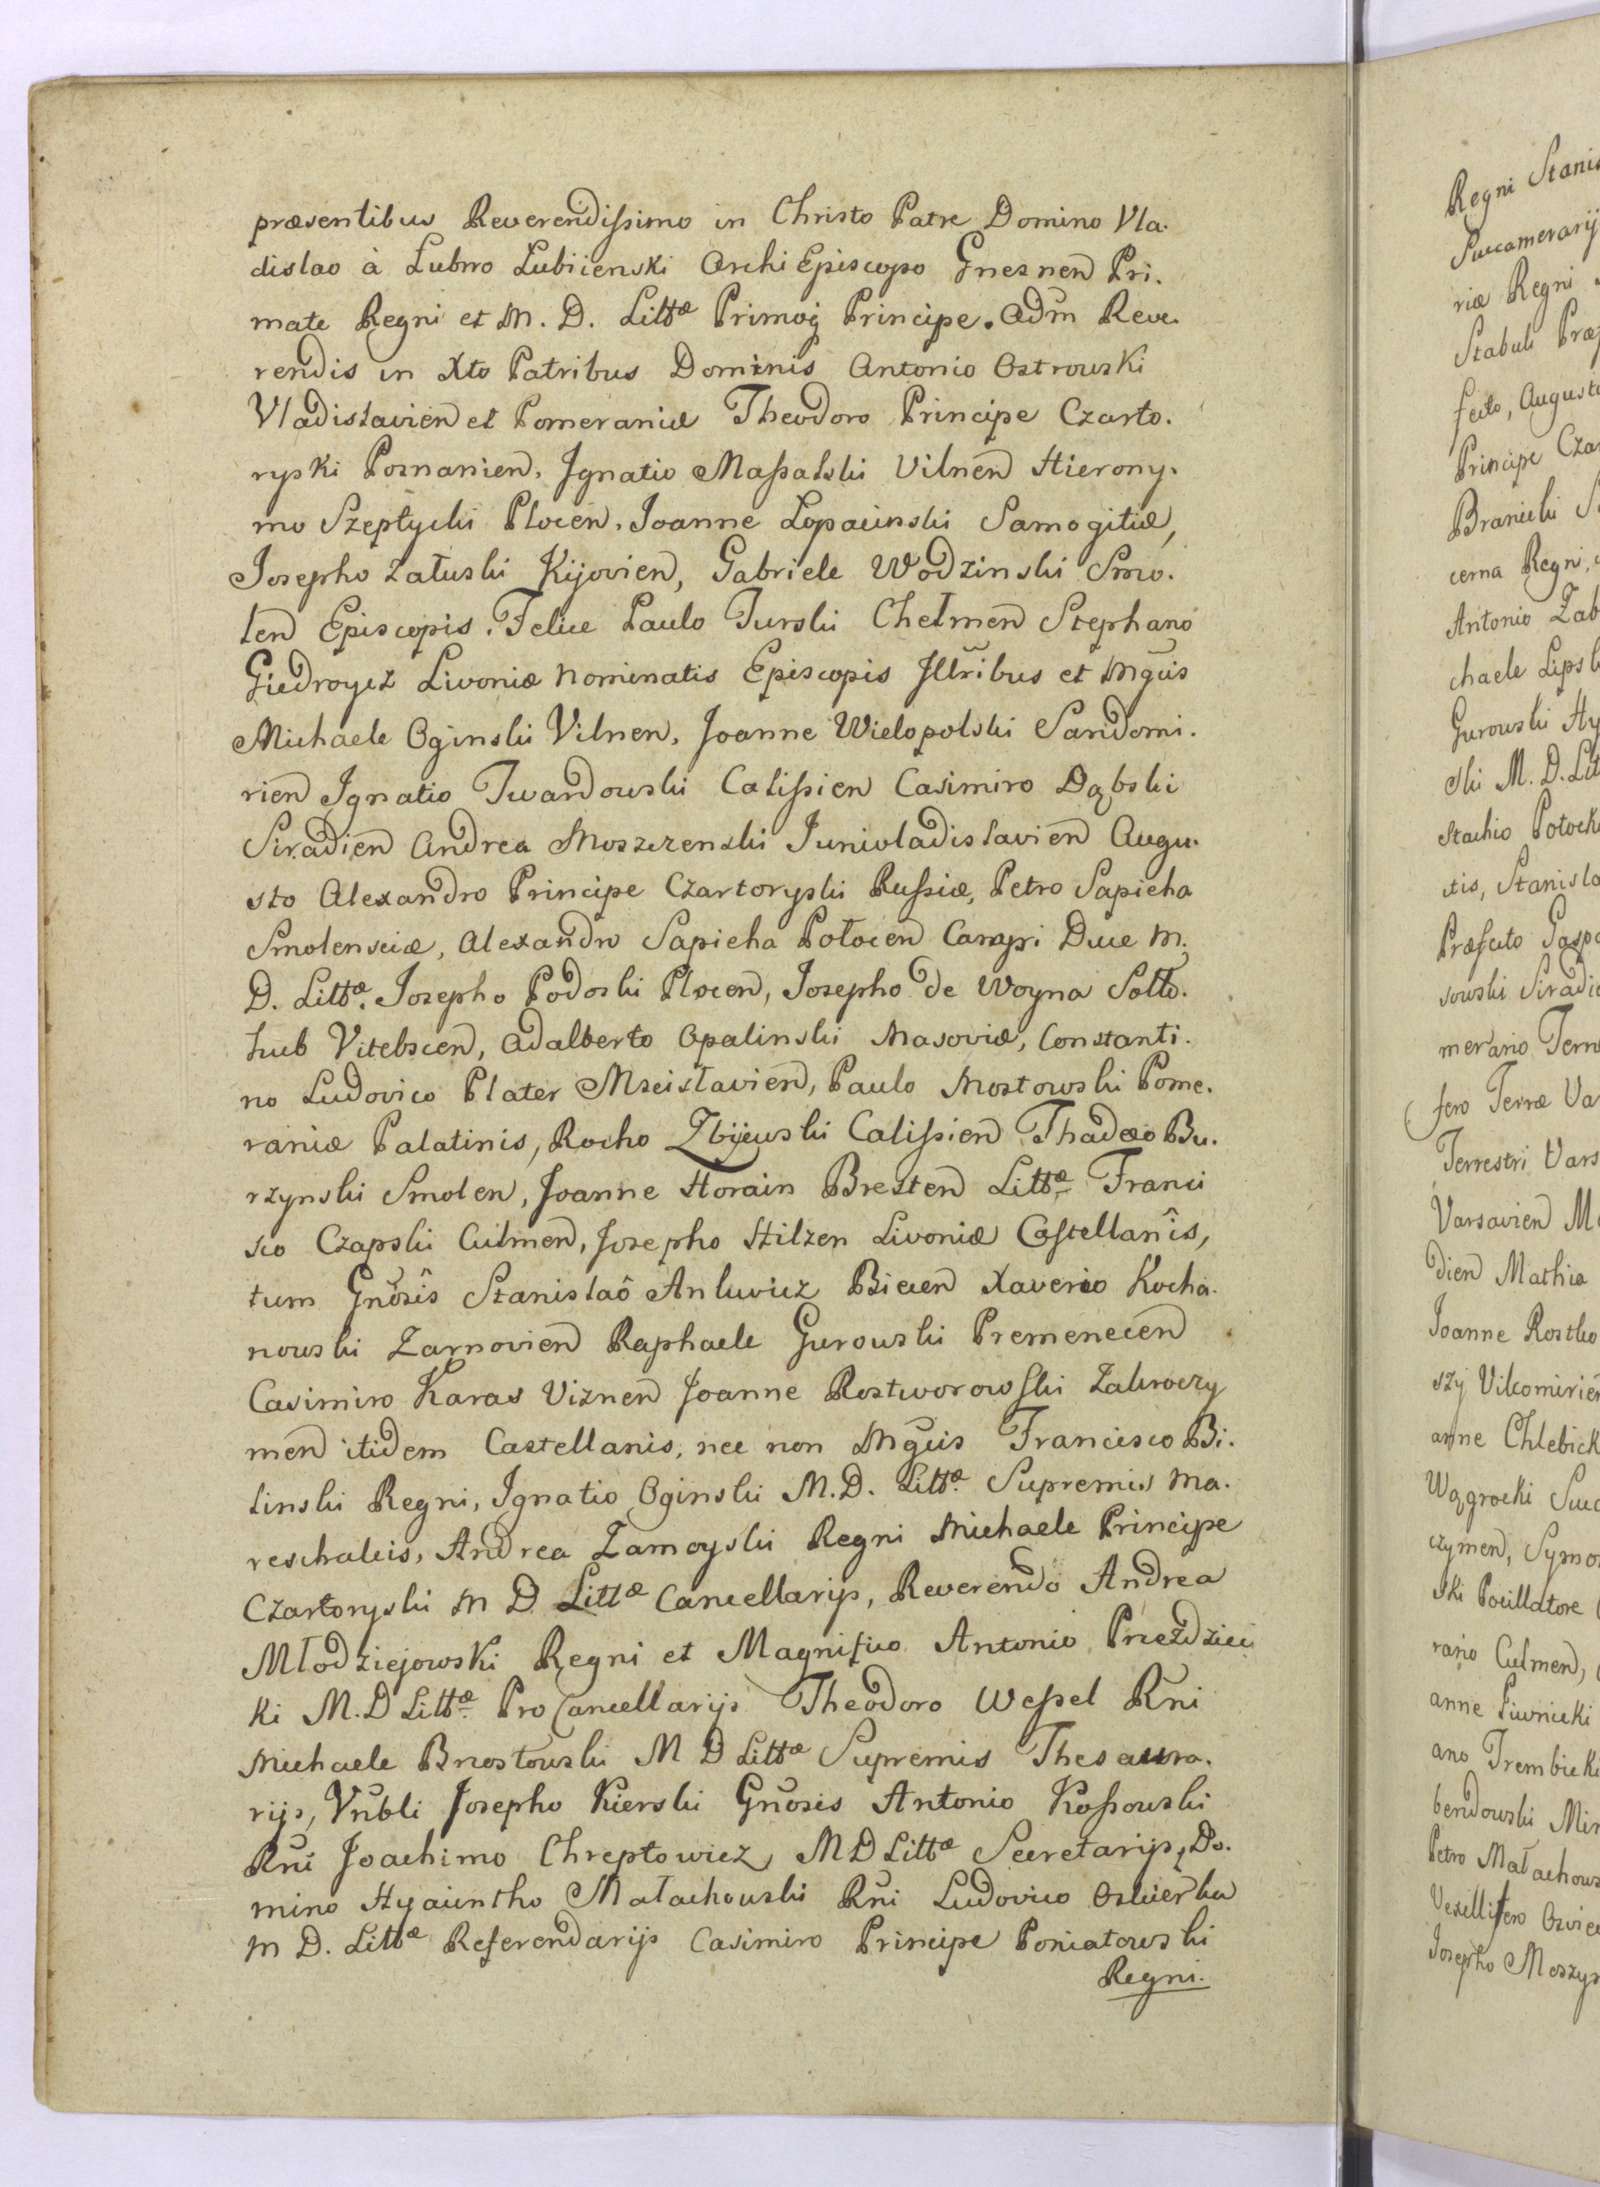 præsentibus Reverendissimo in Christo Patre Domino Vla.
dislao à Lubno Lubiienski ArchiEpiscopo Gnesnen Pri.
mate Regni et M. D. Littæ Primog Principe. Adm Reve.
rendis in Xto Patribus Dominis Antonio Ostrowski
Vladislavien et Pomeraniæ Theodoro Principe Czarto.
ryski Posnanien, Ignatio Massalski Vilnen Hierony.
mo Szeptycki Plocen, Joanne Łopacinski Samogitiæ,
Josepho Załuski Kijovien, Gabriele Wodzinski Smo.
len Episcopis. Felice Paulo Turski Chełmen Stephano
Giedroycz Livoniæ Nominatis Episcopis Illribus et Mgcis
Michaele Oginski Vilnen, Joanne Wielopolski Sandomi.
rien Ignatio Twardowski Calissien Casimiro Dąbski
Siradien Andrea Moszczenski Juniwladislavien Augu.
sto Alexandro Principe Czartoryski Russiæ, Petro Sapieha
Smolensciæ, Alexandro Sapieha Połocen Campi Duce M.
D. Littæ. Josepho Podoski Plocen, Josepho de Woyna Sołło.
hub Vitebscen, Adalberto Opalinski Masoviæ, Constanti.
no Ludovico Plater Mscislavien, Paulo Mostowski Pome.
raniæ Palatinis, Rocho Zbijewski Calissien Thadæo Bu.
rzynski Smolen, Joanne Horain Bresten Littæ Franci
sco Czapski Culmen, Josepho Hilzen Livoniæ Castellanîs,
tum Gnosîs Stanislaô Ankwicz Biecen Xaverio Kocha.
nowski Zarnovien Raphaele Gurowski Premenecen
Casimiro Karas Viznen Joanne Rostworowski Zakroczy
men itidem Castellanis, nec non Mgcis Francisco Bi.
linski Regni, Ignatio Oginski M.D. Littæ Supremis Ma.
reschalcis, Andrea Zamoyski Regni Michaele Principe
Czartoryski M D Littæ Cancellarijs, Reverendo Andrea
Młodziejowski Regni et Magnifico Antonio Przezdziec
ki M.D Littæ ProCancellarijs Theodoro Wessel Rni
Michaele Brzostowski M D Littæ Supremis Thesaura.
rijs, Vnbli Josepho Kierski Gnosis Antonio Kossowski
Rni Joachimo Chreptowicz M D Littæ Secretarijs, Do.
mino Hyacintho Małachowski Rni Ludovico Oskierka
M D. Littæ Referendarijs Casimiro Principe Poniatowski
Regni.
Regni Stanis
Succamerarij
riæ Regni
Stabuli Præf
fecto, Augusto
Principe Czar
Branicki S
cerna Regni,
Antonio Zab
chaele Lipsk
Gurowski Hy
ski M. D. Lit
stachio Potock
tis, Stanisla
Præfecto Gaspa
sowski Siradie
merario Terræ
fero Terræ Va
Terrestri Vars
Varsavien M
dien Mathia
Joanne Rostko
szy Vilcomirien
anne Chlebick
Wągrocki Succ
czymen, Symo
ski Pocillatore
rario Culmen,
anne Piwnicki
ano Trembicki
bendowski Mir
Petro Małachows
Vexillifero Osviec
Josepho Moszyn